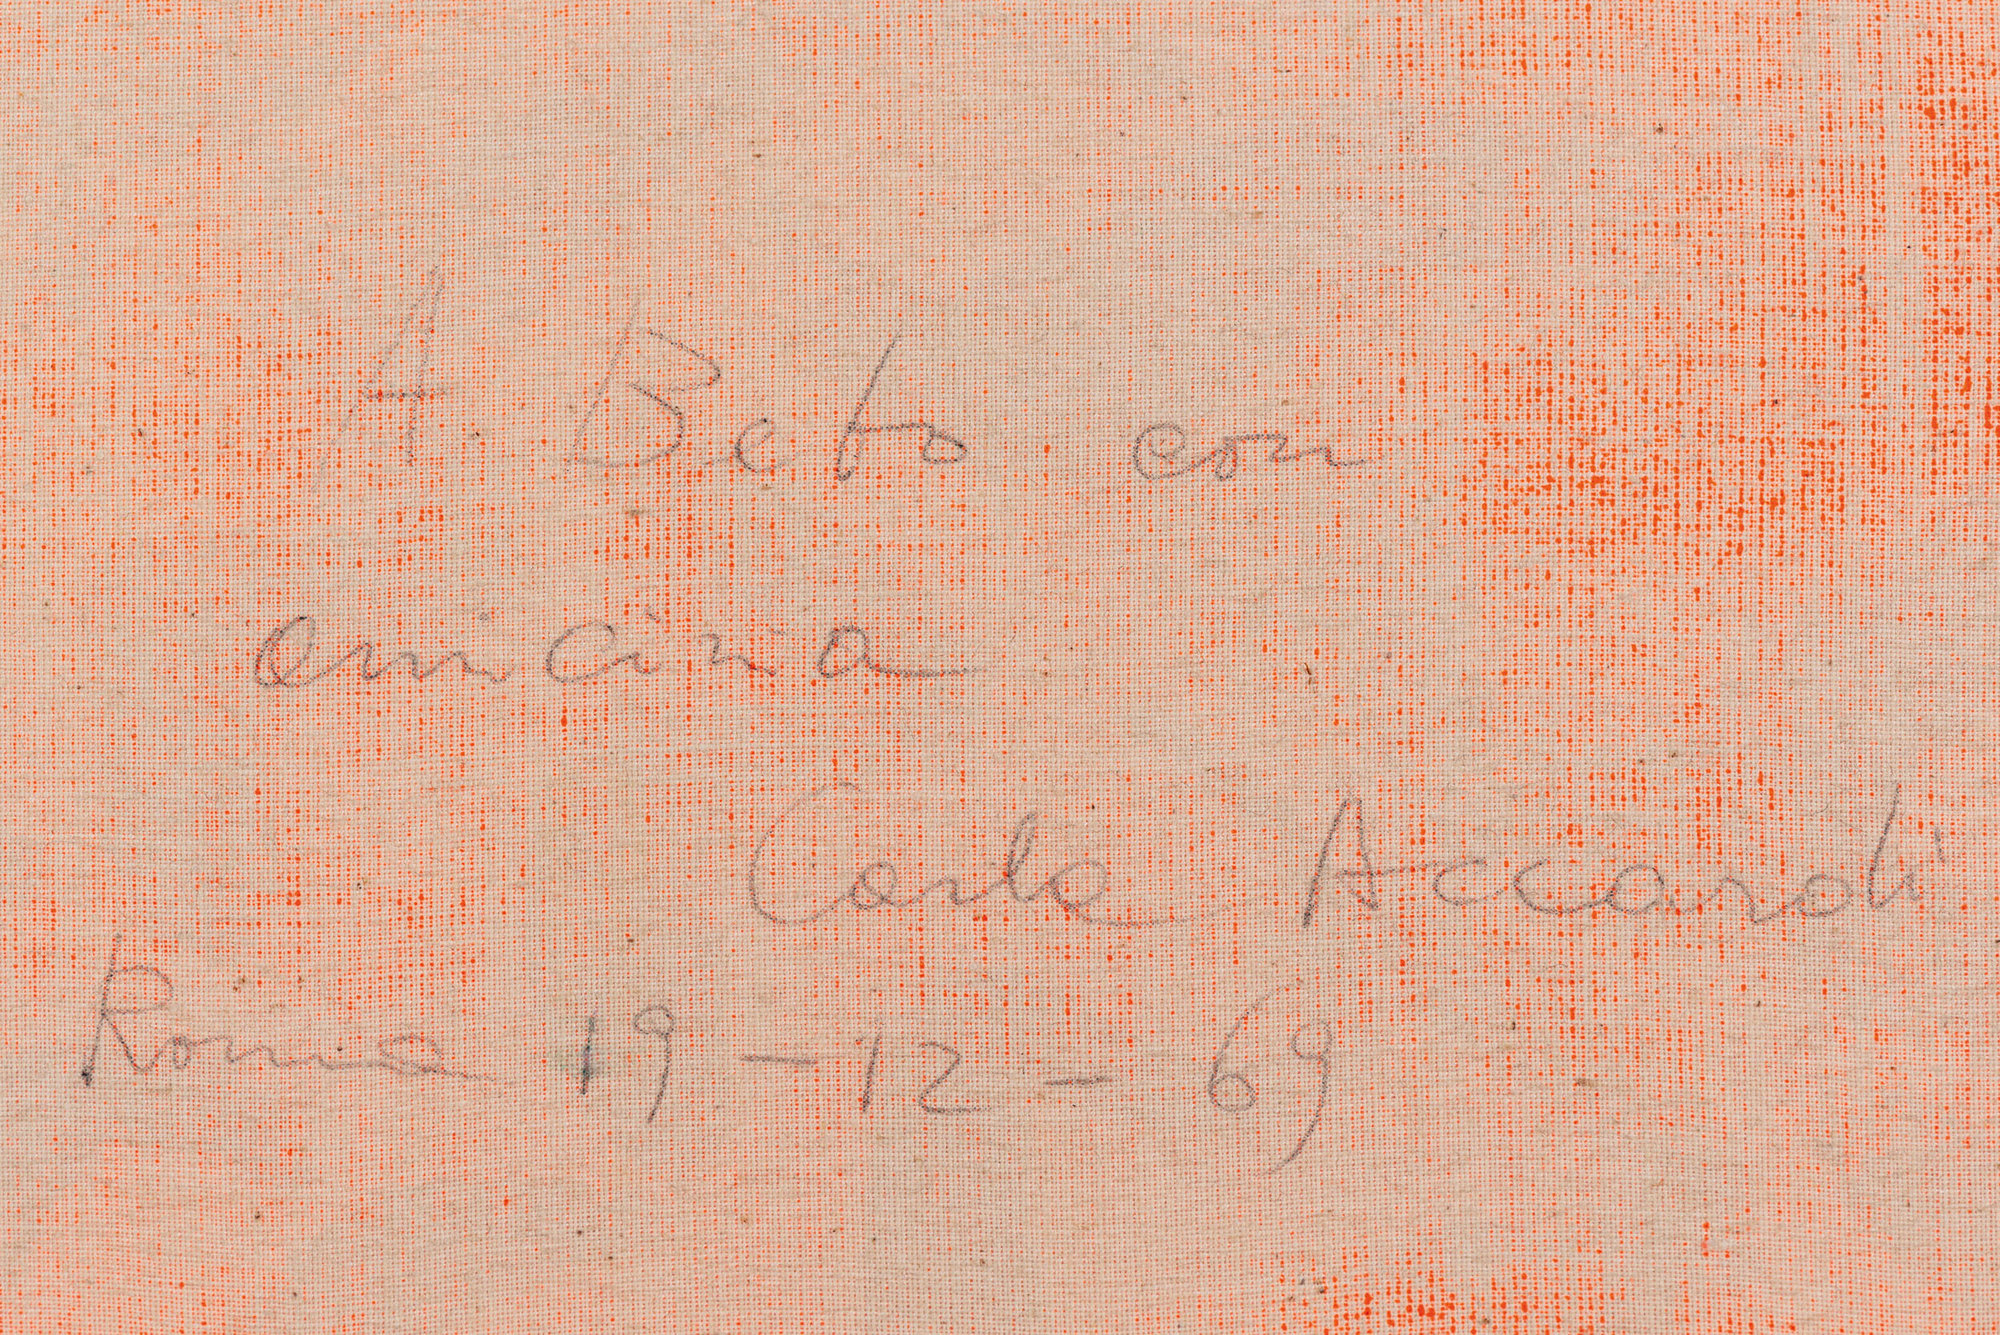 A Beto con
amicizia
Carla Accardi
Roma 19-12-69